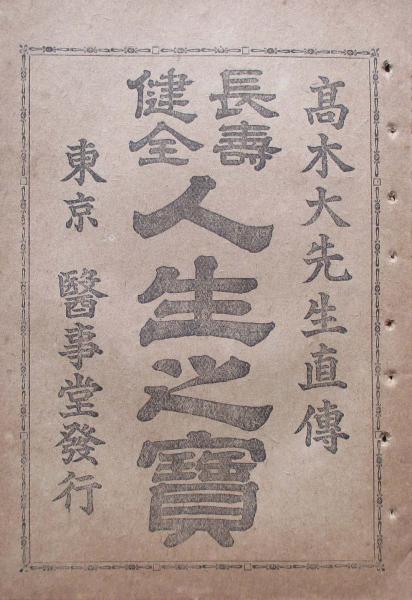 髙木大先生直傳
長壽
健全
人生之寶
東京 醫事堂發行